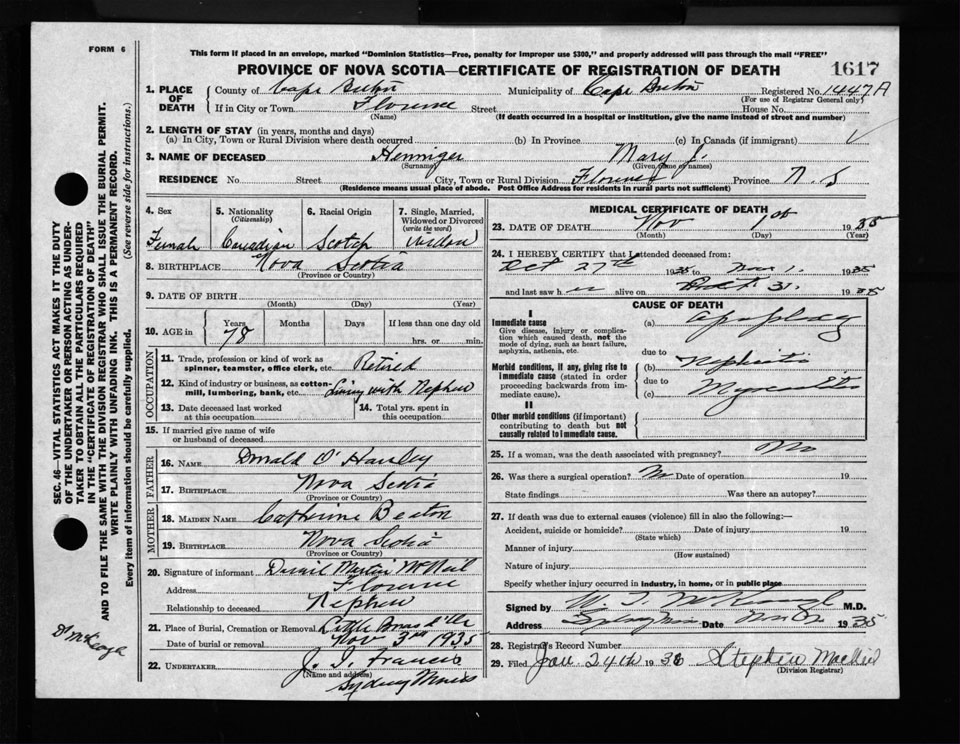 FORM 6
This form if placed in an envelope, marked "Dominion Statistics—Free, penalty for improper use $300," and properly addressed will pass through the mail "FREE"
PROVINCE OF NOVA SCOTIA—CERTIFICATE OF REGISTRATION OF DEATH
1617
1. PLACE OF DEATH
County of Cape Breton Municipality of Cape Breton Registered No. 1447A
(For use of Registrar General only)
If in City or Town Florence Street House No.
(Name) (If death occurred in a hospital or institution, give the name instead of street and number)
2. LENGTH OF STAY (in years, months and days)
(a) In City, Town or Rural Division where death occurred (b) In Province (c) In Canada (if immigrant)
3. NAME OF DECEASED Henniger Mary J.
(Surname) (Given name or names)
RESIDENCE No. Street City, Town or Rural Division Florence Province N.S
(Residence means usual place of abode. Post Office Address for residents in rural parts not sufficient)
4. Sex Female
5. Nationality (Citizenship) Canadian
6. Racial Origin Scotch
7. Single, Married, Widowed or Divorced (write the word) Widow
8. BIRTHPLACE Nova Scotia
(Province or Country)
9. DATE OF BIRTH
(Month) (Day) (Year)
10. AGE in Years 78 Months Days If less than one day old
hrs. or min.
OCCUPATION
11. Trade, profession or kind of work as spinner, teamster, office clerk, etc. Retired
12. Kind of industry or business, as cotton-mill, lumbering, bank, etc. Living with Nephew
13. Date deceased last worked at this occupation
14. Total yrs. spent in this occupation
15. If married give name of wife or husband of deceased
FATHER
16. NAME Donald O'Hanley
17. BIRTHPLACE Nova Scotia
(Province or Country)
MOTHER
18. MAIDEN NAME Catherine Beaton
19. BIRTHPLACE Nova Scotia
(Province or Country)
20. Signature of informant Martin McNeil
Address Florence
Relationship to deceased Nephew
21. Place of Burial, Cremation or Removal Little Bras d'Or
Date of burial or removal Nov. 3rd 1935
22. UNDERTAKER J. J. Francis
(Name and address)
Sydney Mines
MEDICAL CERTIFICATE OF DEATH
23. DATE OF DEATH Nov 1st 1935
(Month) (Day) (Year)
24. I HEREBY CERTIFY that I attended deceased from:
Oct 27th 1935 to Nov 1. 1935
and last saw her alive on Oct 31. 1935
CAUSE OF DEATH
I
Immediate cause
Give disease, injury or complication which caused death, not the mode of dying, such as heart failure, asphyxia, asthenia, etc.
(a) Apoplexy
due to
Morbid conditions, if any, giving rise to immediate cause (stated in order proceeding backwards from immediate cause).
(b) Nephritis
due to
(c) Myocarditis
II
Other morbid conditions (if important) contributing to death but not causally related to immediate cause.
25. If a woman, was the death associated with pregnancy? No
26. Was there a surgical operation? No Date of operation 19
State findings Was there an autopsy?
27. If death was due to external causes (violence) fill in also the following:—
Accident, suicide or homicide? Date of injury 19
(State which)
Manner of injury
(How sustained)
Nature of injury
Specify whether injury occurred in industry, in home, or in public place
Signed by M.D.
Address Date 1935
28. Registrar's Record Number
29. Filed Jan. 24th 1936 Stephen
(Division Registrar)
SEC. 46—VITAL STATISTICS ACT MAKES IT THE DUTY
OF THE UNDERTAKER OR PERSON ACTING AS UNDER-
TAKER TO OBTAIN ALL THE PARTICULARS REQUIRED
IN THE "CERTIFICATE OF REGISTRATION OF DEATH"
AND TO FILE THE SAME WITH THE DIVISION REGISTRAR WHO SHALL ISSUE THE BURIAL PERMIT.
WRITE PLAINLY WITH UNFADING INK. THIS IS A PERMANENT RECORD.
Every item of information should be carefully supplied. (See reverse side for instructions.)